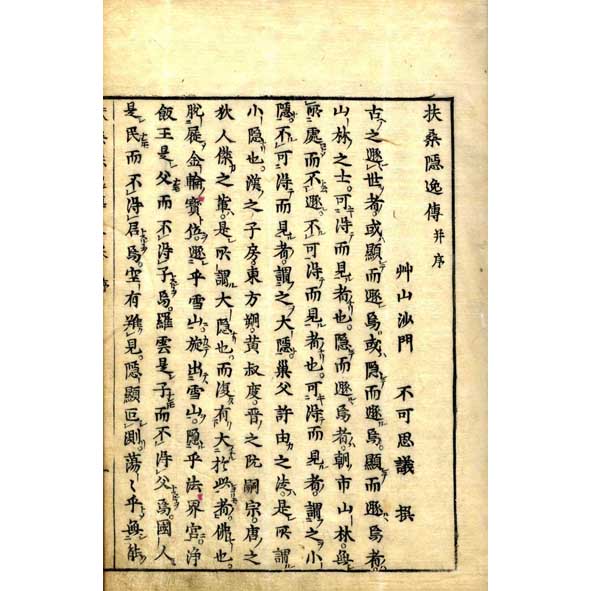 扶桑隱逸傳 并序
艸山沙門 不可思議 撰
古之遯世者。或顯而遯焉。或隱而遯焉。顯而遯焉者。
山林之士。可得而見者也。隱而遯焉者。朝市山林。無
所處而不遯。不可得而見者也。可得而見者。謂之小
隱。不可得而見者。謂之大隱。巢父許由之徒。是所謂
小隱也。漢之子房。東方朔。黃叔度。晉之阮嗣宗。唐之
狄人傑之輩。是所謂大隱也。而復有大於此者。佛也。
脫屣金輪寶位。遯乎雪山。旋出雪山。隱乎法界宮。淨
飯王是父而不得子焉。羅雲是子而不得父焉。國人
是民而不得君焉。空有難見。隱顯叵測。蕩〻乎無能